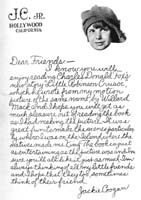 J.C. JR.
HOLLYWOOD
CALIFORNIA
Dear Friends—
I know you will
enjoy reading Charles Donald Fox's
story Little Robinson Crusoe,
which he wrote from my motion
picture of the same name by Willard
Mack and I hope you will get as
much pleasure out of reading the book
as I had making the picture. It was
great fun to make the movie
I was on the Island
made me King. The book is in just
as entertaining as the picture and I'm
sure you will all like it just as much. I'm
always thinking of all my little friends
and I hope that they too sometimes
think of their friend,
Jackie Coogan